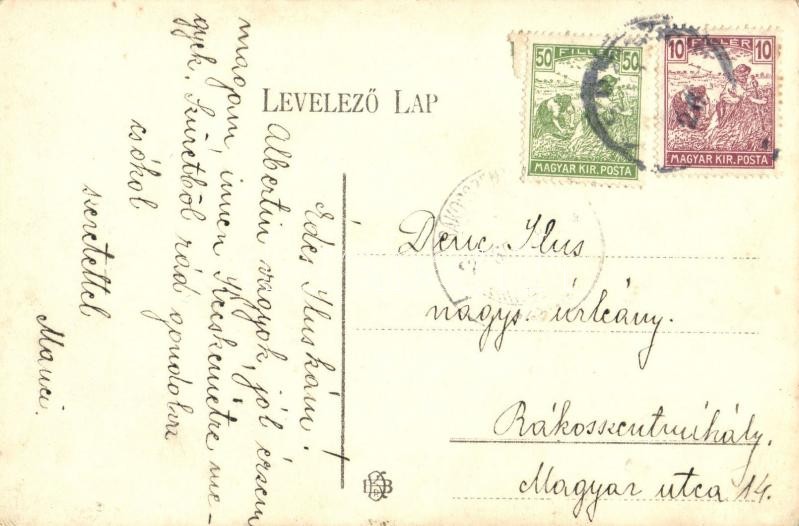 LEVELEZŐ LAP
50 FILLÉR 50
MAGYAR KIR. POSTA
10 FILLÉR 10
MAGYAR KIR. POSTA
Édes Iluskám!
Albertin vagyok, jól érzem
magam, innen Kecskemétre me-
gyek. Szüretből rád gondolva
csókol
szeretettel
Manci.
Ilus
nagys. úrleány.
Rákosszentmihály.
Magyar utca 14.